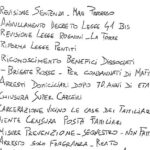 REVISIONE SENTENZA - MAXI PROCESSO
ANNULLAMENTO DECRETO LEGGE 41 BIS
REVISIONE LEGGE ROGNONI - LA TORRE
RIFORMA LEGGE PENTITI
RICONOSCIMENTO BENEFICI DISSOCIATI
- BRIGATE ROSSE - PER CONDANNATI DI MAFIA
ARRESTI DOMICILIARI DOPO 70 ANNI DI ETÀ
CHIUSURA SUPER CARCERI
CARCERAZIONE VICINO LE CASE DEI FAMILIARI
NIENTE CENSURA POSTA FAMILIARI
MISURE PREVENZIONE - SEQUESTRO - NON FAM
ARRESTO SOLO FRAGRANZA - REATO